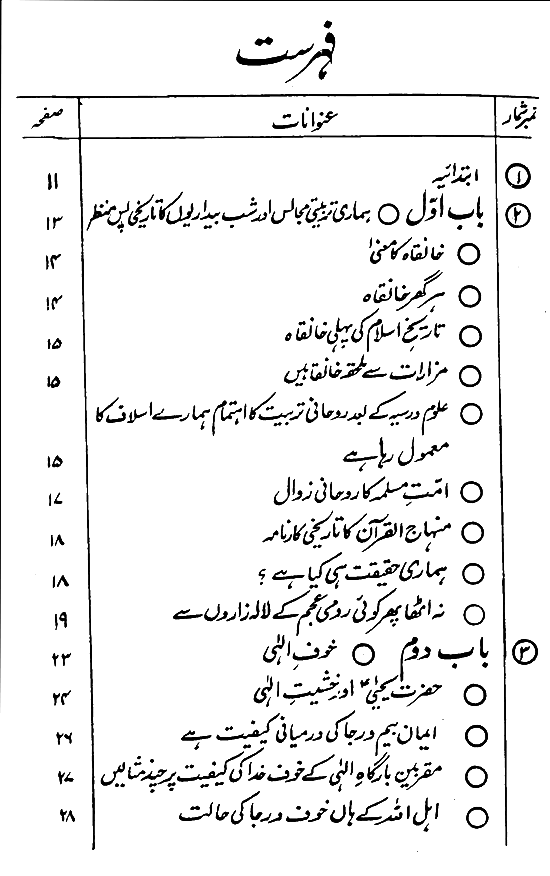 فہرست
نمبر شمار عنوانات صفحہ
۱ ابتدائیہ ۱۱
۲ باب اوّل ○ ہماری تربیتی مجالس اور شب بیداریوں کا تاریخی پس منظر ۱۳
○ خانقاہ کا معنیٰ ۱۴
○ ہر گھر خانقاہ ۱۴
○ تاریخِ اسلام کی پہلی خانقاہ ۱۵
○ مزارات سے ملحقہ خانقاہیں ۱۵
○ علوم درسیہ کے بعد روحانی تربیت کا اہتمام ہمارے اسلاف کا
معمول رہا ہے ۱۵
○ امّتِ مسلمہ کا روحانی زوال ۱۷
○ منہاج القرآن کا تاریخی کارنامہ ۱۸
○ ہماری حقیقت ہی کیا ہے ؟ ۱۸
○ نہ اٹھا پھر کوئی رومی عجم کے لالہ زاروں سے ۱۹
۳ باب دوم ○ خوفِ الٰہی ۲۳
○ حضرت یحییٰؑ اور خشیتِ الٰہی ۲۴
○ ایمان بیم و رجا کی درمیانی کیفیت ہے ۲۶
○ مقربینِ بارگاہِ الٰہی کے خوف خدا کی کیفیت پر چند مثالیں ۲۷
○ اہل اللہ کے ہاں خوف و رجا کی حالت ۲۸